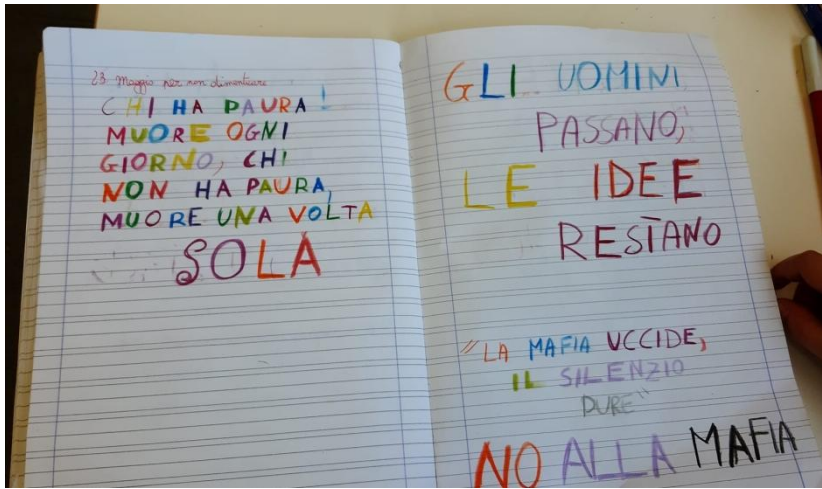 23 Maggio per non dimenticare
CHI HA PAURA!
MUORE OGNI
GIORNO, CHI
NON HA PAURA,
MUORE UNA VOLTA
SOLA
GLI UOMINI
PASSANO,
LE IDEE
RESTANO
"LA MAFIA UCCIDE,
IL SILENZIO
PURE"
NO ALLA MAFIA